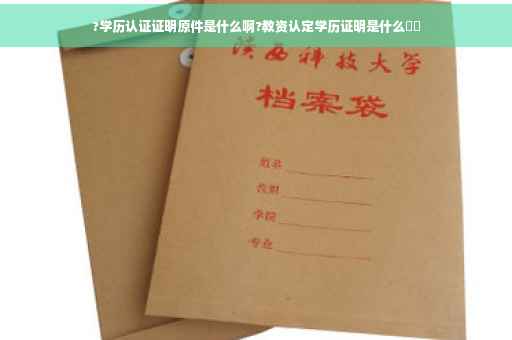 ?学历认证证明原件是什么啊?教资认定学历证明是什么▯▯
陕西科技大学
档案袋
姓名
学院
专业